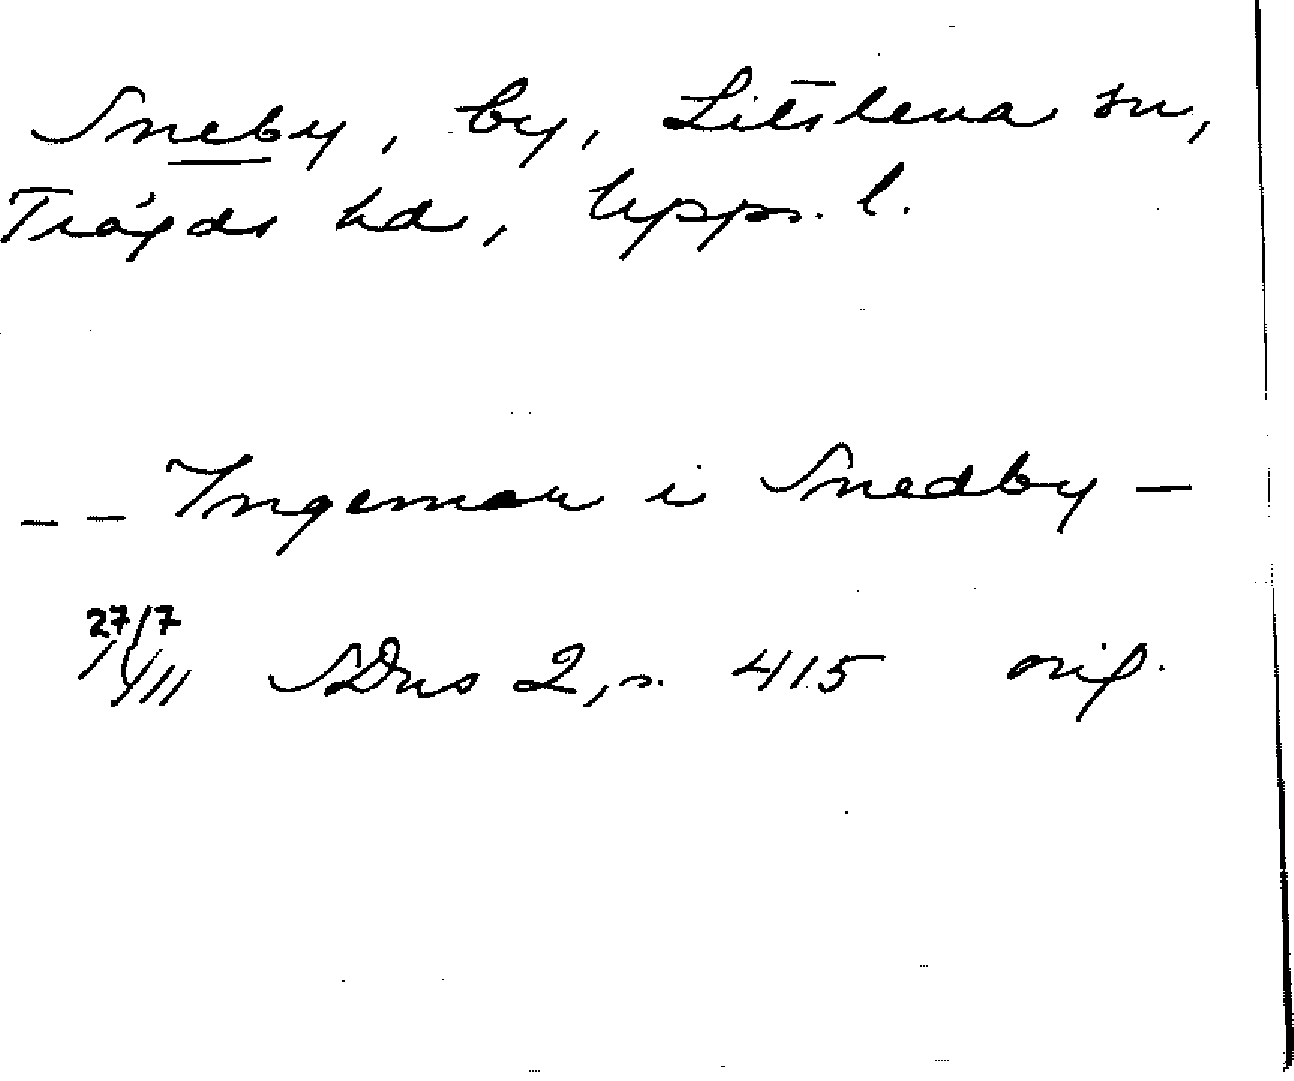 Sneby, by, Litslena sn,
Trögds hd, Upps. l.
_ _ Ingemar i Snedby –
27/7 1411 SDns 2, s. 415 orig.